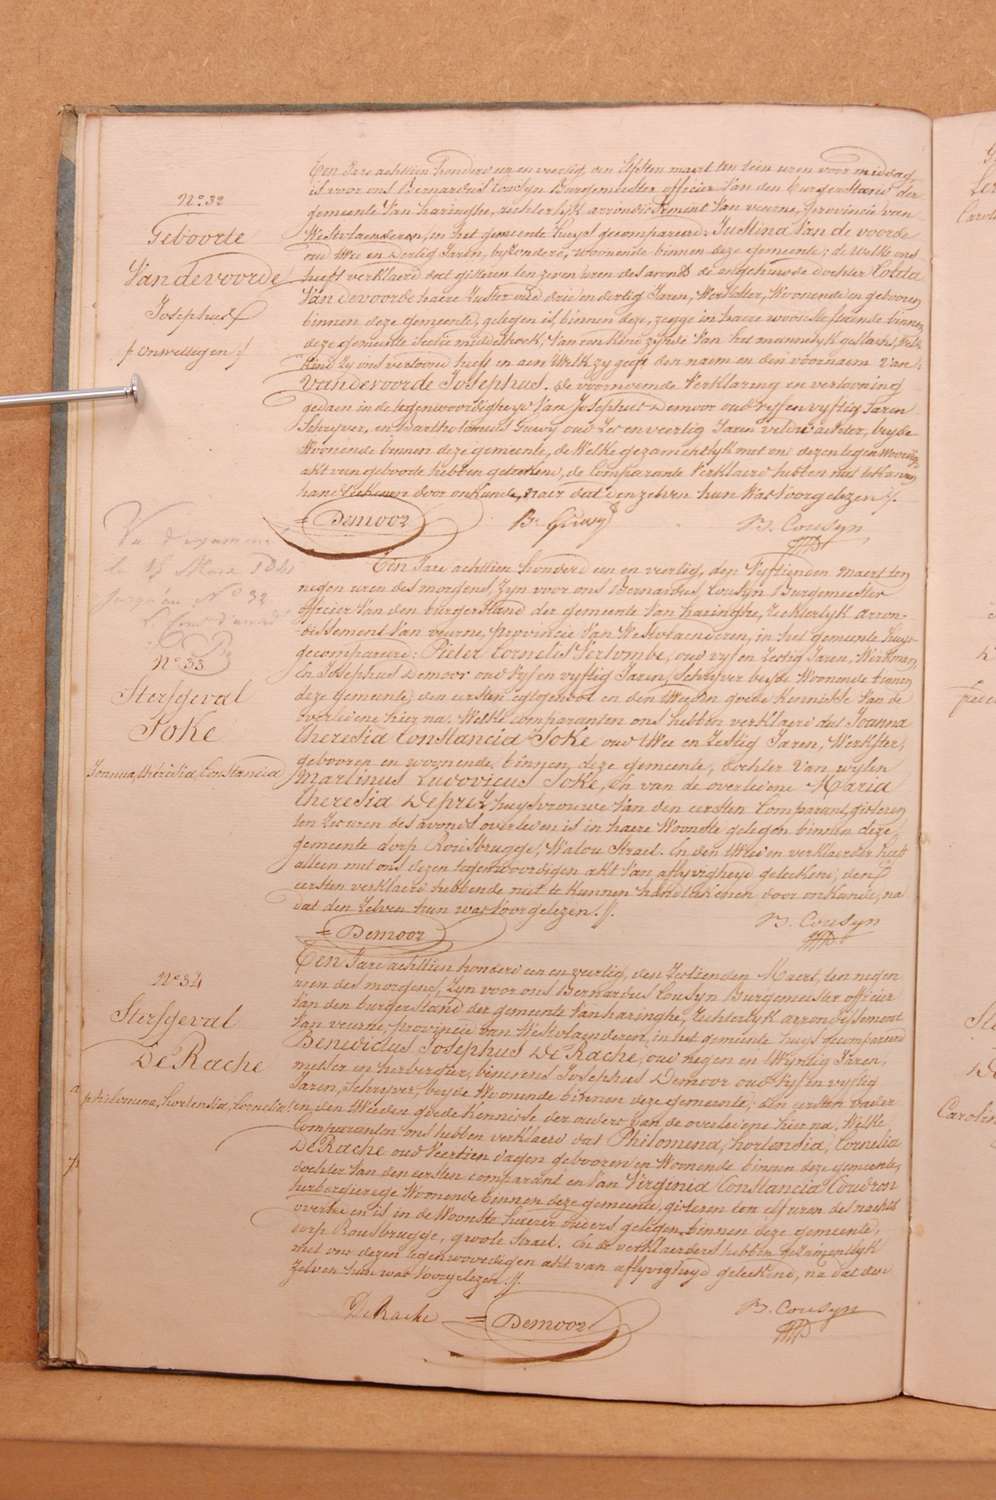 N° 32
Geboorte
Vandevoorde
Josephus
onwettigen
Een Jare achttien honderd een en veertig, den Elfsten maert ten tien uren voor middag
is voor ons Bernardus Cousyn Burgemeester officier Van den burgerstand der
gemeente Van haringhe, rechterlyk arrondissement Van veurne, provincie van
Westvlaenderen, in het gemeente huys gecompareerd, Justina Van de voorde
oud twee en dertig Jaren, byzondere, woonende binnen deze gemeente; de welke ons
heeft verklaerd dat gisteren ten zeven uren des avonds de ongehuwde dochter Coleta
Vandevoorde haere Zuster oud drie en dertig Jaren, Werkster, Woonende en geboren
binnen deze gemeente, gelegen is, binnen deze, zegge in haere woonste staende binnen
deze gemeente Sectie middelhoek, Van een kind zynde Van het mannelyk geslacht, Welk
kind zy ons vertoond heeft en aen Welk zy geeft den naem en den voornaem Van
Vandevoorde Josephus. de voornoemde Verklaring en vertooning
gedaen in de tegenwoordigheyd Van Josephus Demoor oud vyf en vyftig Jaren
Schryver, en Bartholomeus Guewy oud Zes en veertig Jaren veldwachter, beyde
Woonende binnen deze gemeente, de Welke gezamentlyk met ons dezen tegenwoordig
akt van geboorte hebben geteekend, de Comparante Verklaerd hebben niet te kunnen
handteekenen door onkunde, naer dat den zelven hun was Voorgelezen ./.
Demoor B. Guewy B. Cousyn
Vu et examiné
le 15 Mars 1841
jusqu'au N° 32
N° 33
Sterfgeval
Joke
Joanna, thérésia, Constancia
Een Jare achttien honderd een en veertig, den Vyftienden maert ten
negen uren des morgens, Zyn voor ons Bernardus Cousyn Burgemeester
officier Van den burgerstand der gemeente Van haringhe, rechterlyk arron-
dissement Van veurne, provincie Van Westvlaenderen, in het gemeente huys
gecompareerd: Pieter Cornelis Verlombe, oud vyf en Zestig Jaren, Werkman,
En Josephus Demoor oud Vyf en vyftig Jaren, Schryver beyde Woonende binnen
deze gemeente; den eersten Egtgenoot en den tweeden goede kennisse Van de
overledene hier na. Welke comparanten ons hebben verklaerd dat Joanna
theresia Constancia Joke oud twee en Zestig Jaren, Werkster,
geboren en woonende binnen deze gemeente, dochter Van wylen
Martinus Ludovicus Joke, En van de overledene Maria
theresia Deprez huysvrouwe Van den eersten Comparant, gisteren
ten Zes uren des avonds overleden is in haere Woonste gelegen binnen deze
gemeente dorp Rousbrugge, Walou Straet. En den tweeden verklaerder heeft
alleen met ons dezen tegenwoordigen akt Van aflyvigheyd geteekend; den
eersten verklaerd hebbende niet te kunnen handteekenen door onkunde, na
dat den Zelven hun was Voorgelezen ./.
Demoor B. Cousyn
N° 34
Sterfgeval
De Rache
philomena, hortensia, Cornelia
Een Jare achttien honderd een en veertig, den Zestienden Maert, ten negen
uren des morgens, Zyn voor ons Bernardus Cousyn Burgemeester officier
Van den burgerstand der gemeente Van haringhe, rechterlyk arrondissement
Van veurne, provincie van Westvlaenderen, in het gemeente huys gecompareerd
Benedictus Josephus De Rache, oud negen en twintig Jaren,
metser en herbergier, benevens Josephus Demoor oud Vyf en vyftig
Jaren, Schryver, beyde Woonende binnen deze gemeente; den eersten vader
en den tweeden goede kennisse der ouders van de overledene hier na, Welke
Comparanten ons hebben verklaerd dat Philomena, hortensia, Cornelia
De Rache oud Veertien dagen geboren en Woonende binnen deze gemeente,
dochter Van den eersten comparant en Van Virginia Constancia Coudron
herbergierege Woonende binnen deze gemeente, gisteren ten elf uren des nachts
overleden is in de Woonste haerer ouders gelegen binnen deze gemeente,
dorp Rousbrugge, groote Straet. En de verklaerders hebben gezamentlyk
met ons dezen tegenwoordigen akt van aflyvigheyd geteekend, na dat den
Zelven hun was Voorgelezen ./.
De Rache Demoor B. Cousyn
Carolin